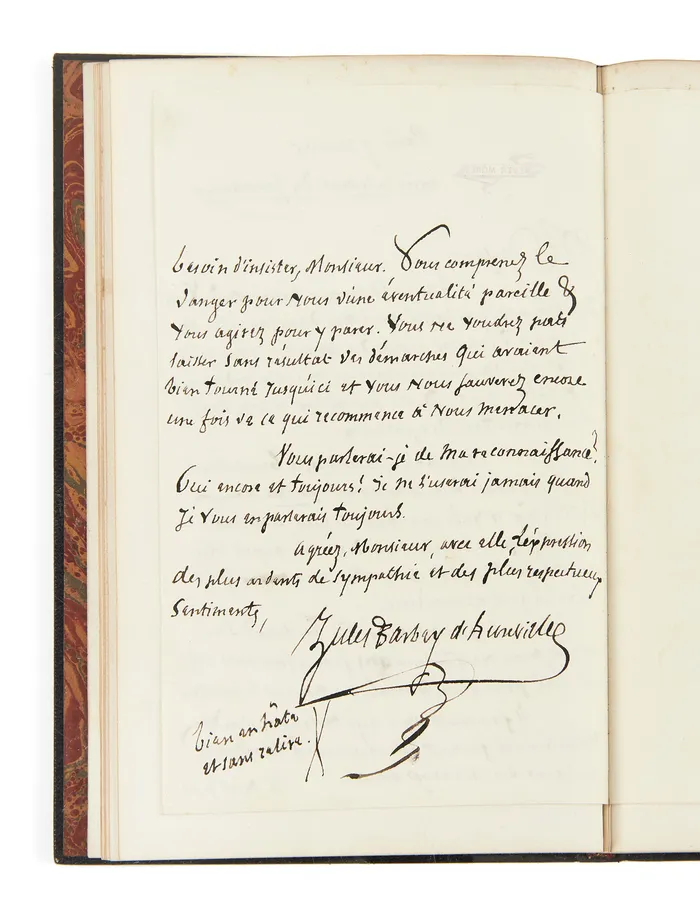 besoin d'insister, Monsieur. Vous comprenez le
danger pour nous d'une éventualité pareille &
vous agirez pour y parer. Vous ne voudrez pas
laisser sans résultat des démarches qui avaient
bien tourné jusqu'ici et vous nous sauverez encore
une fois de ce qui recommence à nous menacer.
Vous parlerai-je de ma reconnaissance?
Oui encore et toujours! Je ne l'userai jamais quand
je vous en parlerais toujours.
agréez, Monsieur, avec elle, l'expression
des plus ardents de sympathie et des plus respectueux
sentiments,
Jules Barbey d'Aurevilly
bien en hâte
et sans relire.